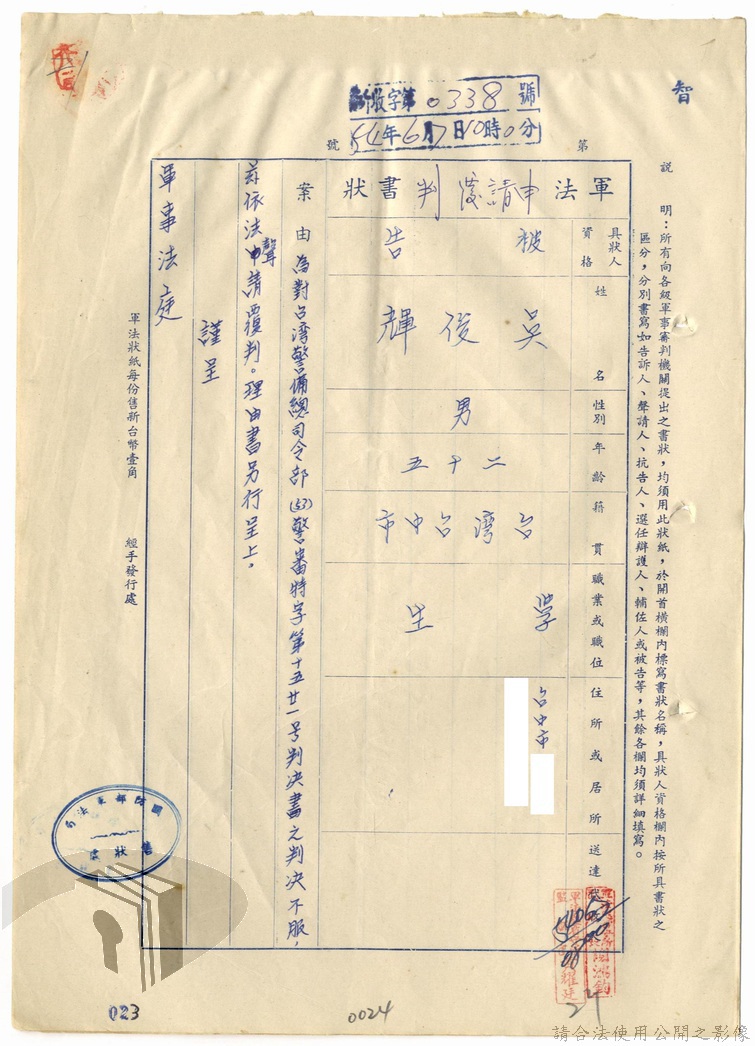 智
收字第0338號
54年6月7日10時0分
第 號
說明：所有向各級軍事審判機關提出之書狀，均須用此狀紙，於開首橫欄內標寫書狀名稱，具狀人資格欄內按所具書狀之
區分，分別書寫如告訴人、聲請人、抗告人、選任辯護人、輔佐人或被告等，其餘各欄均須詳細填寫。
軍法申請覆判書狀
具狀人資格
被告
姓名
吳俊輝
性別
男
年齡
二十五
籍貫
台湾台中市
職業或職位
学生
住所或居所
台中市
送達
案由 為對台湾警備總司令部(53)警審特字第十五廿一号判决書之判决不服，
茲依法聲請覆判。理由書另行呈上。
謹呈
軍事法庭
軍法狀紙每份售新台幣壹角 經手發行處
國防部軍法局
售狀處
24
023
0024
請合法使用公開之影像